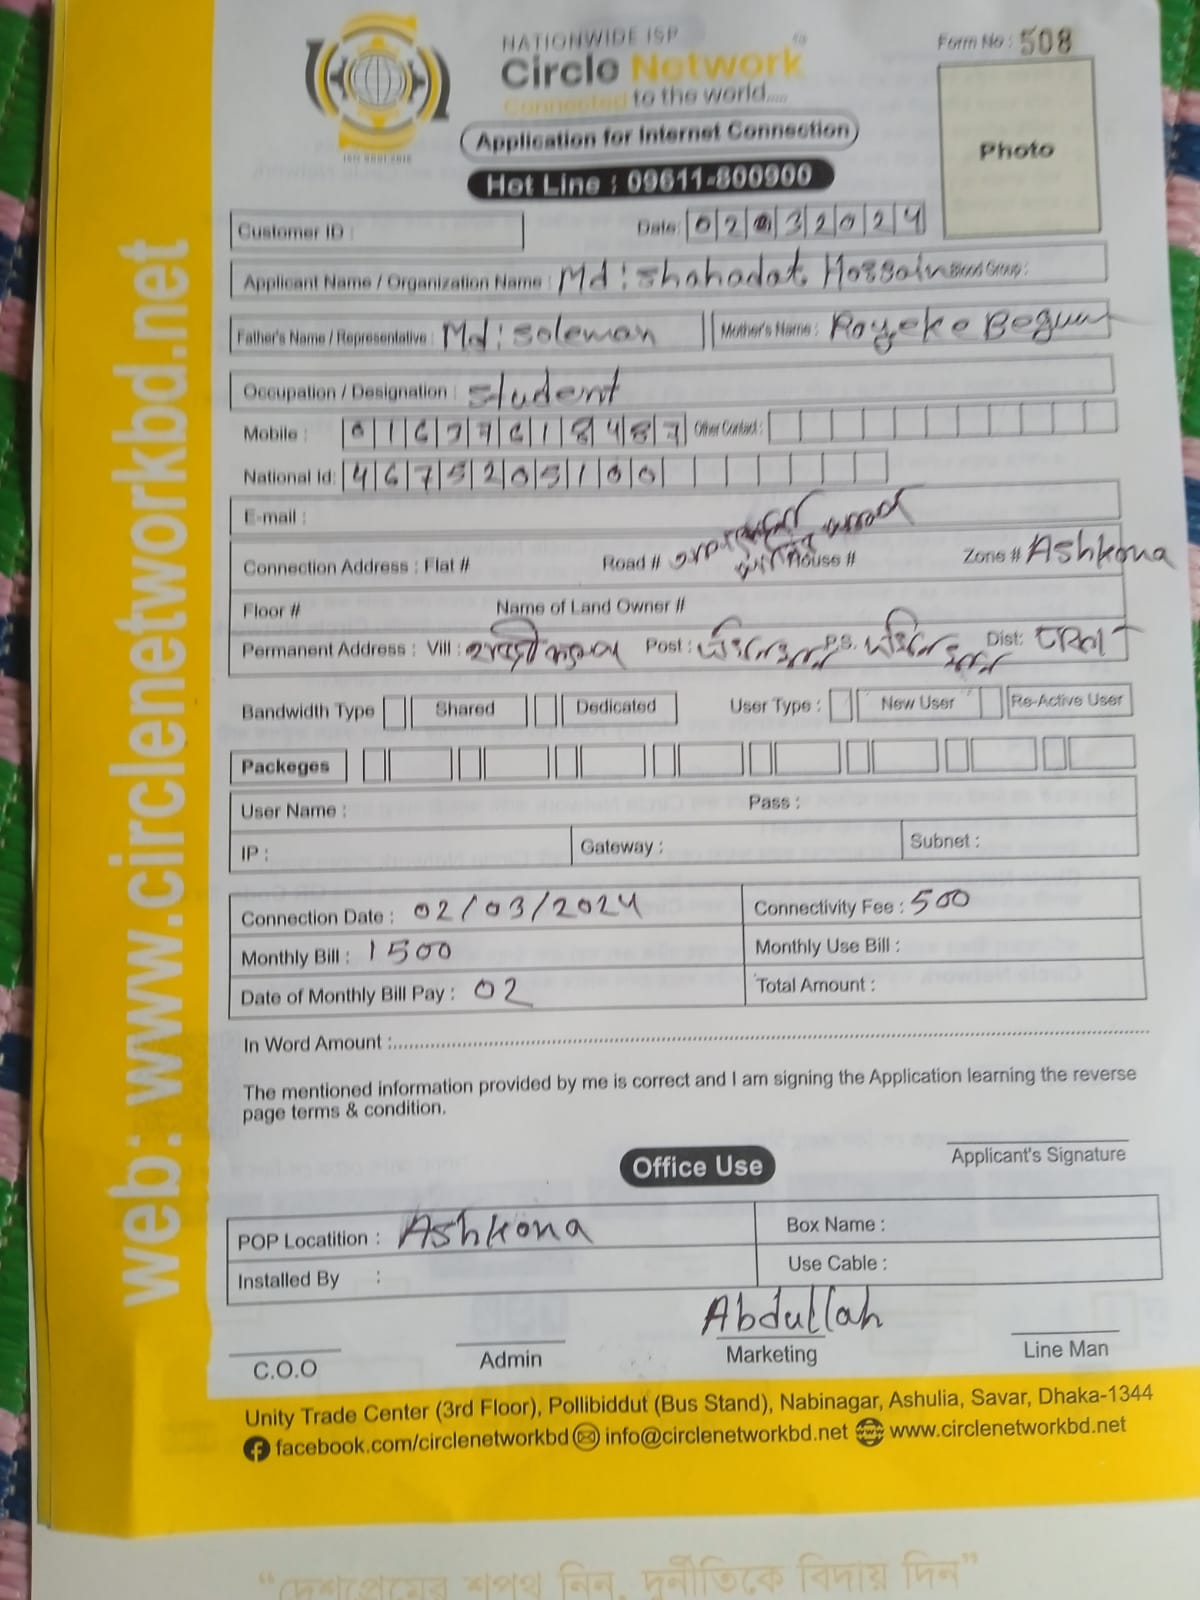 NATIONWIDE ISP
Form No : 508
Circle Network
Connected to the world.....
Application for Internet Connection
Photo
Hot Line : 09611-800900
Customer ID :
Date: 02032024
Applicant Name / Organization Name : Md: Shahadat Hossain Blood Group :
Father's Name / Representative : Md: Soleman Mother's Name : Begum
Occupation / Designation : Student
Mobile : Other Contact :
National Id: 4675205100
E-mail :
Connection Address : Flat # Road # House # Zone # Ashkona
Floor # Name of Land Owner #
Permanent Address : Vill : Post : P.S. Dist: ঢাকা
Bandwidth Type Shared Dedicated User Type : New User Re-Active User
Packeges
User Name : Pass :
IP : Gateway : Subnet :
Connection Date : 02/03/2024 Connectivity Fee : 500
Monthly Bill : 1500 Monthly Use Bill :
Date of Monthly Bill Pay : 02 Total Amount :
In Word Amount :
The mentioned information provided by me is correct and I am signing the Application learning the reverse
page terms & condition.
Applicant's Signature
Office Use
POP Locatition : Ashkona Box Name :
Installed By : Use Cable :
Abdullah
C.O.O Admin Marketing Line Man
Unity Trade Center (3rd Floor), Pollibiddut (Bus Stand), Nabinagar, Ashulia, Savar, Dhaka-1344
facebook.com/circlenetworkbd info@circlenetworkbd.net www.circlenetworkbd.net
web: www.circlenetworkbd.net
“দেশপ্রেমের শপথ নিন, দুর্নীতিকে বিদায় দিন”